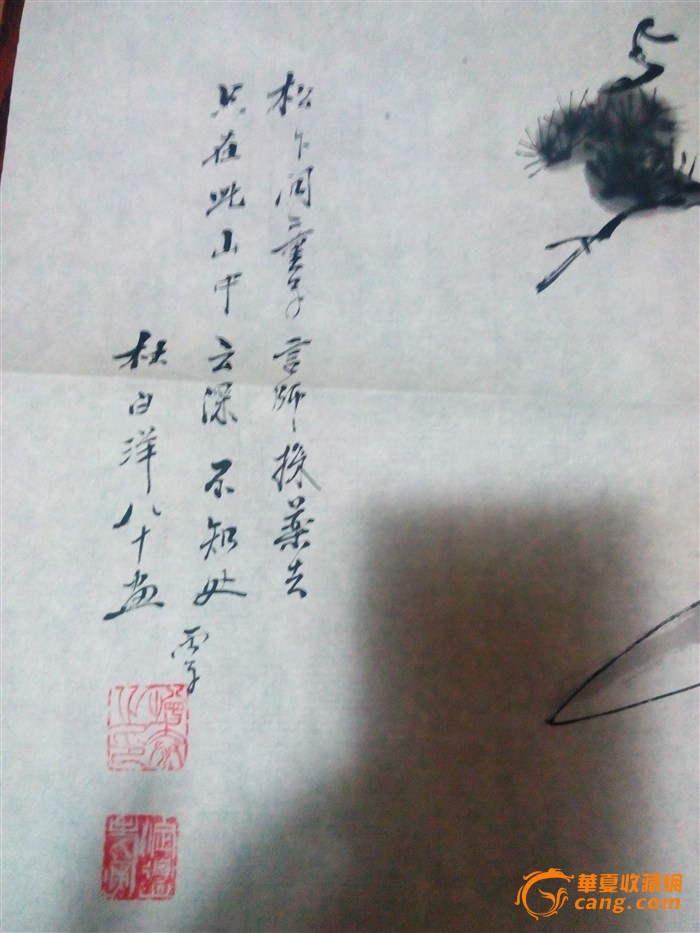 松下问童子言师採药去
只在此山中云深不知处 丙子
白洋八十画
華夏收藏網
cang.com